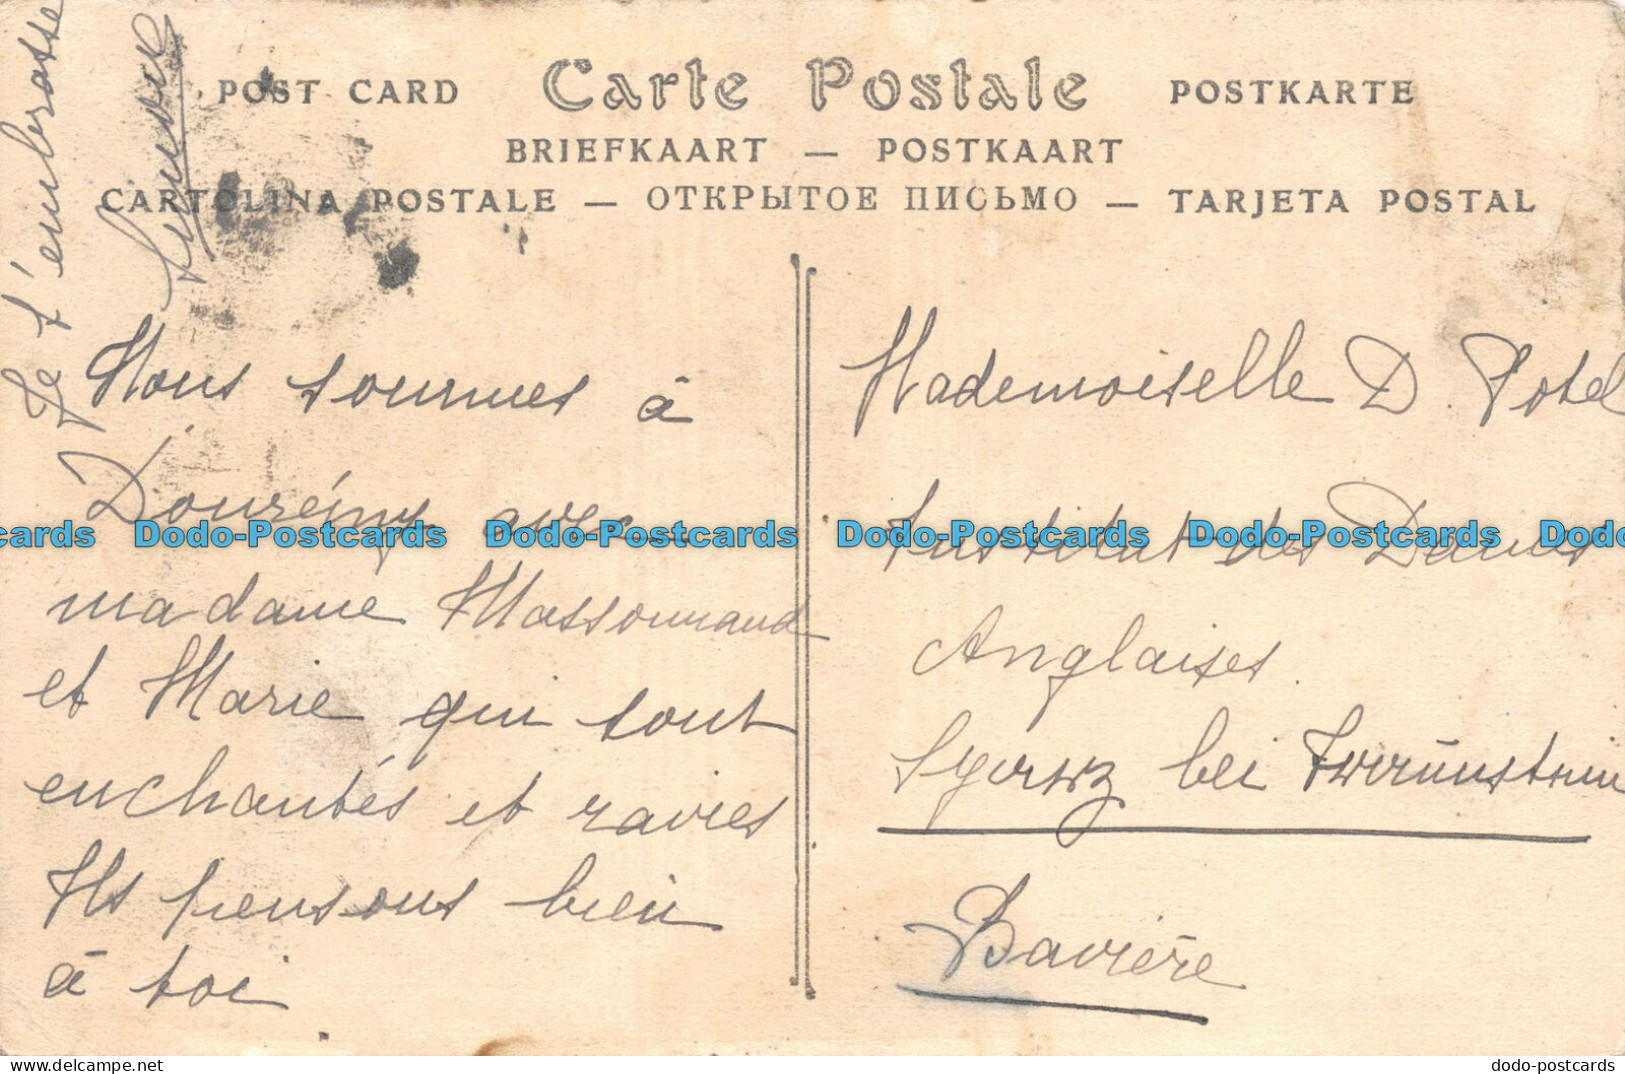 POST CARD Carte Postale POSTKARTE
BRIEFKAART — POSTKAART
CARTOLINA POSTALE — ОТКРЫТОЕ ПИСЬМО — TARJETA POSTAL
Je t'embrasse
Nous sommes à
avec
madame Massonnaud
et Marie qui sont
enchantés et ravies
Ils pensons bien
à toi
Mademoiselle D. Potel
Institut des Dames
Anglaises
bei
Bavière
Dodo-Postcards Dodo-Postcards Dodo-Postcards Dodo-Postcards Dodo-Postcards
dodo-postcards
dodo-postcards